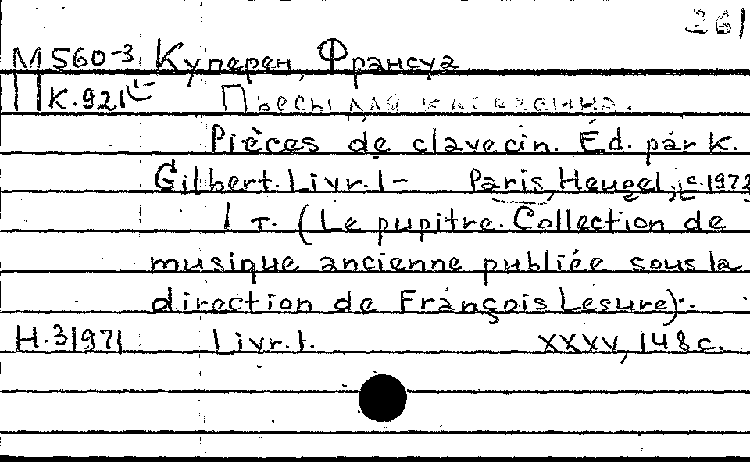 261
М560-3 Куперен, Франсуа
К.921 Пьесы для клавесина.
Pièces de clavecin. Éd. par K.
Gilbert. Livr. 1- Paris, Heugel, c.1972
1 т. (Le pupitre. Collection de
musique ancienne publiée sous la
direction de François Lesure).
Н.31971 Livr. 1. XXXV, 148 с.